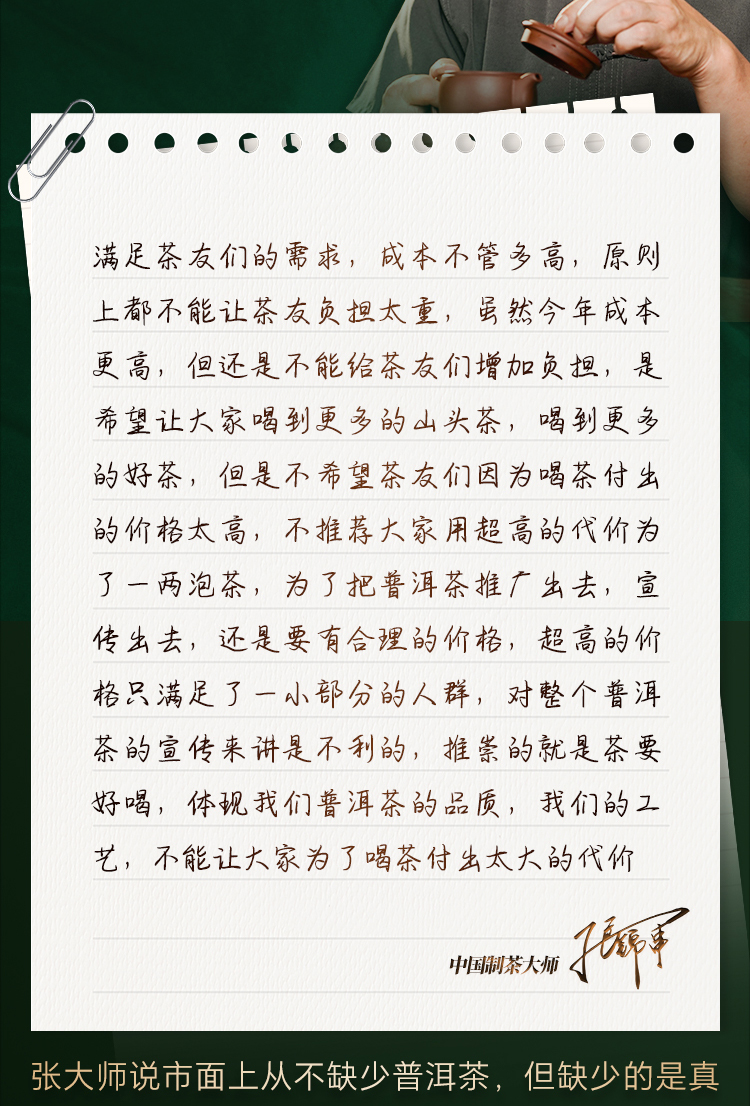 满足茶友们的需求，成本不管多高，原则
上都不能让茶友负担太重，虽然今年成本
更高，但还是不能给茶友们增加负担，是
希望让大家喝到更多的山头茶，喝到更多
的好茶，但是不希望茶友们因为喝茶付出
的价格太高，不推荐大家用超高的代价为
了一两泡茶，为了把普洱茶推广出去，宣
传出去，还是要有合理的价格，超高的价
格只满足了一小部分的人群，对整个普洱
茶的宣传来讲是不利的，推崇的就是茶要
好喝，体现我们普洱茶的品质，我们的工
艺，不能让大家为了喝茶付出太大的代价
中国制茶大师 張錦軍
张大师说市面上从不缺少普洱茶，但缺少的是真